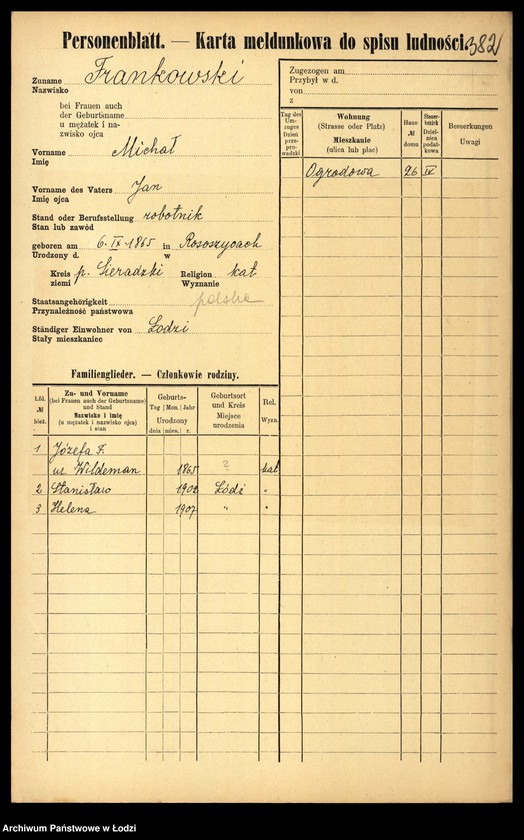 Personenblatt. — Karta meldunkowa do spisu ludności.
382
Zuname Frankowski
Nazwisko
bei Frauen auch
der Geburtsname
u mężatek i na-
zwisko ojca
Vorname Michał
Imię
Vorname des Vaters Jan
Imię ojca
Stand oder Berufsstellung robotnik
Stan lub zawód
geboren am 6. IX 1865 in Rososzycach
Urodzony d. w
Kreis p. Sieradzki Religion kat
ziemi Wyznanie
Staatsangehörigkeit polska
Przynależność państwowa
Ständiger Einwohner von Łodzi
Stały mieszkaniec
Familienglieder. — Członkowie rodziny.
Lfd. № bież.
Zu- und Vorname
(bei Frauen auch der Geburtsname)
und Stand
Nazwisko i imię
(u mężatek i nazwisko ojca)
i stan
Geburts-
Tag Mon. Jahr
Urodzony
dnia mies. r.
Geburtsort
und Kreis
Miejsce
urodzenia
Rel.
Wyzn.
1 Józefa F.
ur. Wildeman 1865 ? kat
2 Stanisław 1902 Łódź "
3 Helena 1907 " "
Zugezogen am
Przybył w d.
von
z
Tag des
Um-
zuges
Dzień
prze-
pro-
wadzki
Wohnung
(Strasse oder Platz)
Mieszkanie
(ulica lub plac)
Haus-
№
domu
Steuer-
bezirk
Dziel-
nica
podat-
kowa
Bemerkungen
Uwagi
Ogrodowa 26 IX
Archiwum Państwowe w Łodzi